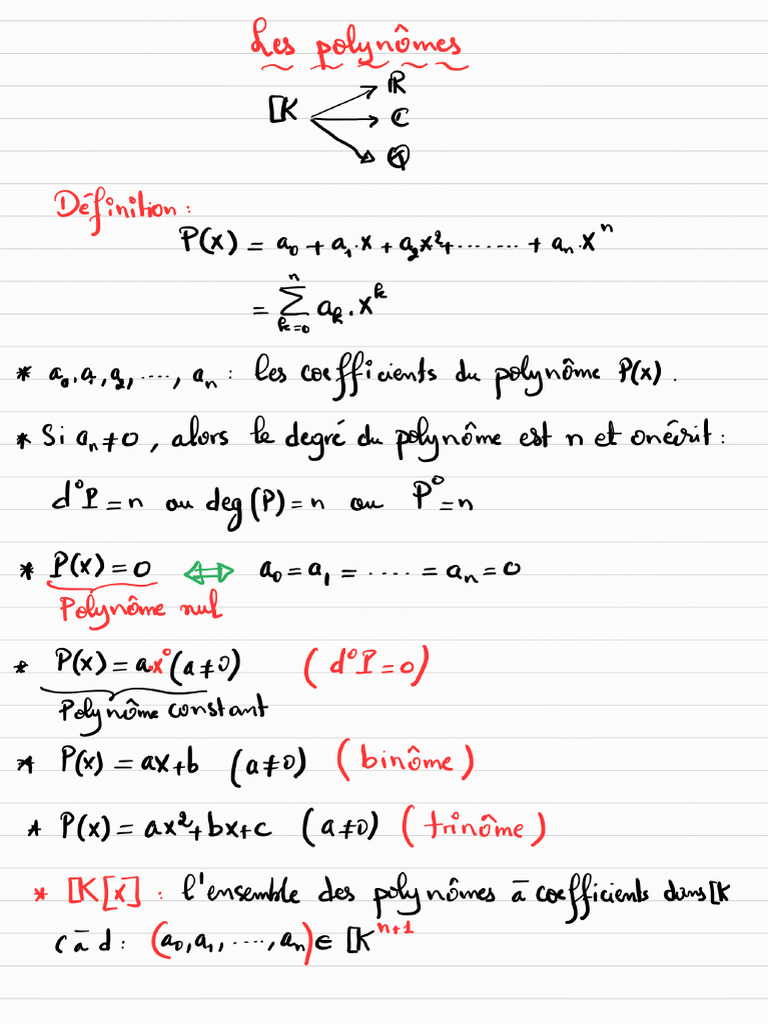 Les polynômes
𝕂 → ℝ
→ ℂ
→ ℚ
Définition :
P(x) = a₀ + a₁.x + a₂x² + ........ + aₙ.xⁿ
= ∑ₖ₌₀ⁿ aₖ.xᵏ
* a₀, a₁, a₂, ...., aₙ : les coefficients du polynôme P(x).
* Si aₙ ≠ 0, alors le degré du polynôme est n et on écrit :
d°P = n ou deg(P) = n ou P° = n
* P(x) = 0 ⟺ a₀ = a₁ = ..... = aₙ = 0
Polynôme nul
* P(x) = ax⁰ (a ≠ 0) (d°P = 0)
Polynôme constant
* P(x) = ax + b (a ≠ 0) (binôme)
* P(x) = ax² + bx + c (a ≠ 0) (trinôme)
* 𝕂[x] : l'ensemble des polynômes à coefficients dans 𝕂
c à d : (a₀, a₁, ...., aₙ) ∈ 𝕂ⁿ⁺¹